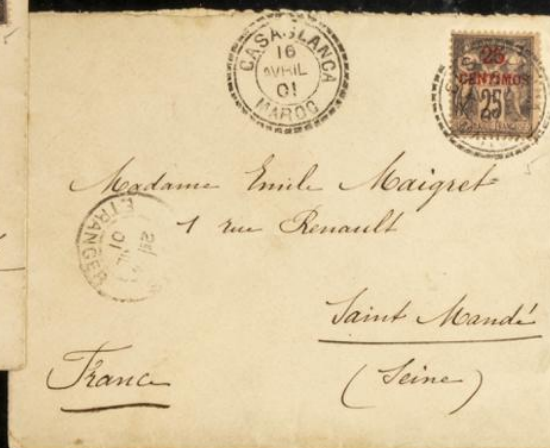 CASABLANCA
16
AVRIL
01
MAROC
25
CENTIMOS
25
Madame Emile Maigret
1 rue Renault
ETRANGER
01
Saint Mandé
(Seine)
France